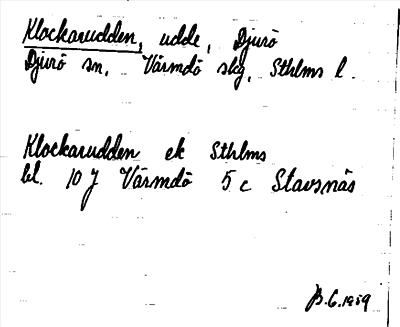 Klockarudden, udde, Djurö
Djurö sn, Värmdö skg, Sthlms l.
Klockarudden ek Sthlms
bl. 10 J Värmdö 5 c Stavsnäs
B.G. 1959